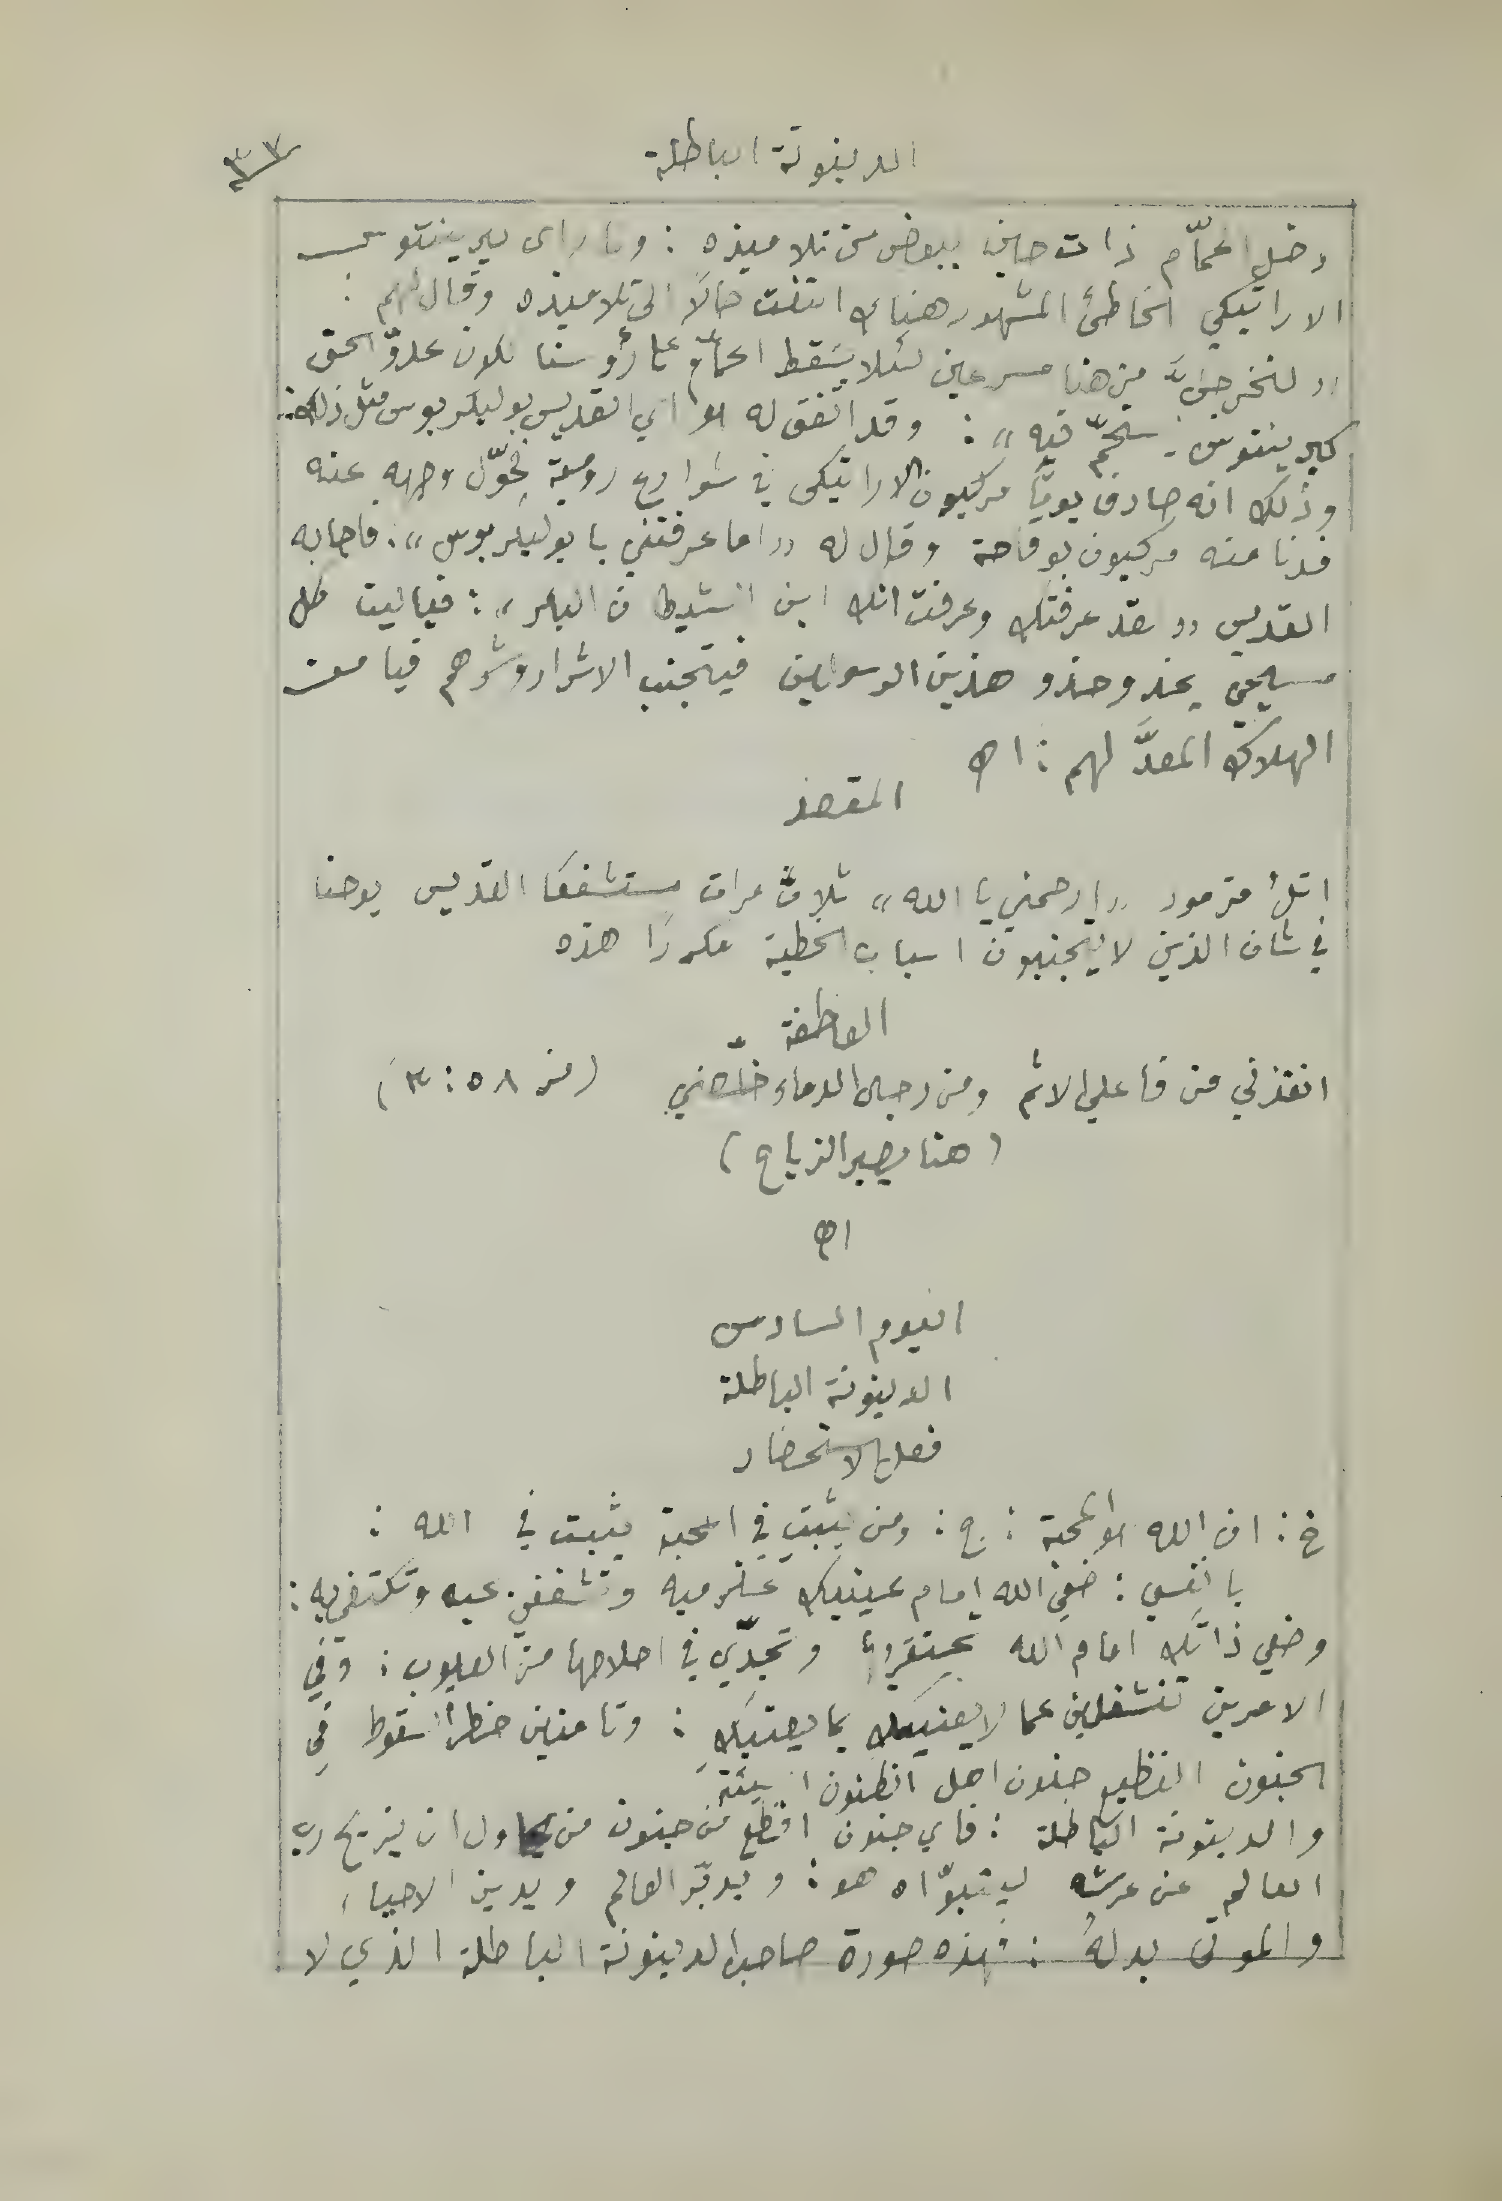 الدينونة الباطلة
٣٧
دخل الحمّام ذات حين ببعض من تلاميذه : ولما راى كيرينتوس
الاراتيكي الخاطئ المشهور هناك التفت حالاً الى تلاميذه وقال لهم :
« لنخرجنَّ من هنا مسرعين لئلا يسقط الحمّام على رؤوسنا لان عدوّ الحق
كيرينتوس يستحمّ فيه » : وقد اتفق له او اي القديس بوليكربوس مثل ذلك :
وذلك انه صادف يوماً مركيون الاراتيكي في شوارع رومية فحوّل وجهه عنه
فدنا منه مركيون بوقاحة وقال له « اما عرفتني يا بوليكربوس » . فاجابه
القديس « لقد عرفتك وعرفت انك ابن الشيطان البكر » : فياليت كل
مسيحي يحذو حذو هذين الرسولين فيتجنب الاشرار وشرهم فيامن
الهلاك المعدَّ لهم : اه
المقصد
اتلُ مزمور « ارحمني يا الله » ثلاث مرات مستشفعًا القديس يوحنا
في شان الذين لا يتجنبون اسباب الخطية مكررًا هذه
العاطفة
انقذني من فاعلي الاثم ومن رجال الدماء خلّصني (مز ٥٨ : ٣)
(هنا يصير الزياح)
اه
اليوم السادس
الدينونة الباطلة
فعل الاستحضار
خ : ان الله هو المحبة : ج : ومن يثبت في المحبة يثبت في الله :
يا نفسي : ضعي الله امام عينيك وتشغفي بحبه وتكتفي به :
وضعي ذاتك امام الله وتجدّي في اصلاحها من العيوب : وفي
الامرين تنشغلين عما لا يعنيك بما يعنيكِ : وتامنين خطر السقوط في
الجنون الفظيع جنون اهل الظنون السيئة
والدينونة الباطلة : فاي جنون افظع من جنون من يحاول ان يزيح رب
العالم عن عرشه ليتبوّاه هو : ويدبّر العالم ويدين الاحياء
والموتى بدلهُ : فهذه صورة صاحب الدينونة الباطلة الذي لا